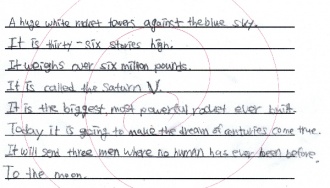 A huge white rocket towers against the blue sky.
It is thirty-six stories high.
It weighs over six million pounds.
It is called the Saturn V.
It is the biggest, most powerful rocket ever built.
Today it is going to make the dream of centuries come true.
It will send three men where no human has ever been before,
To the moon.